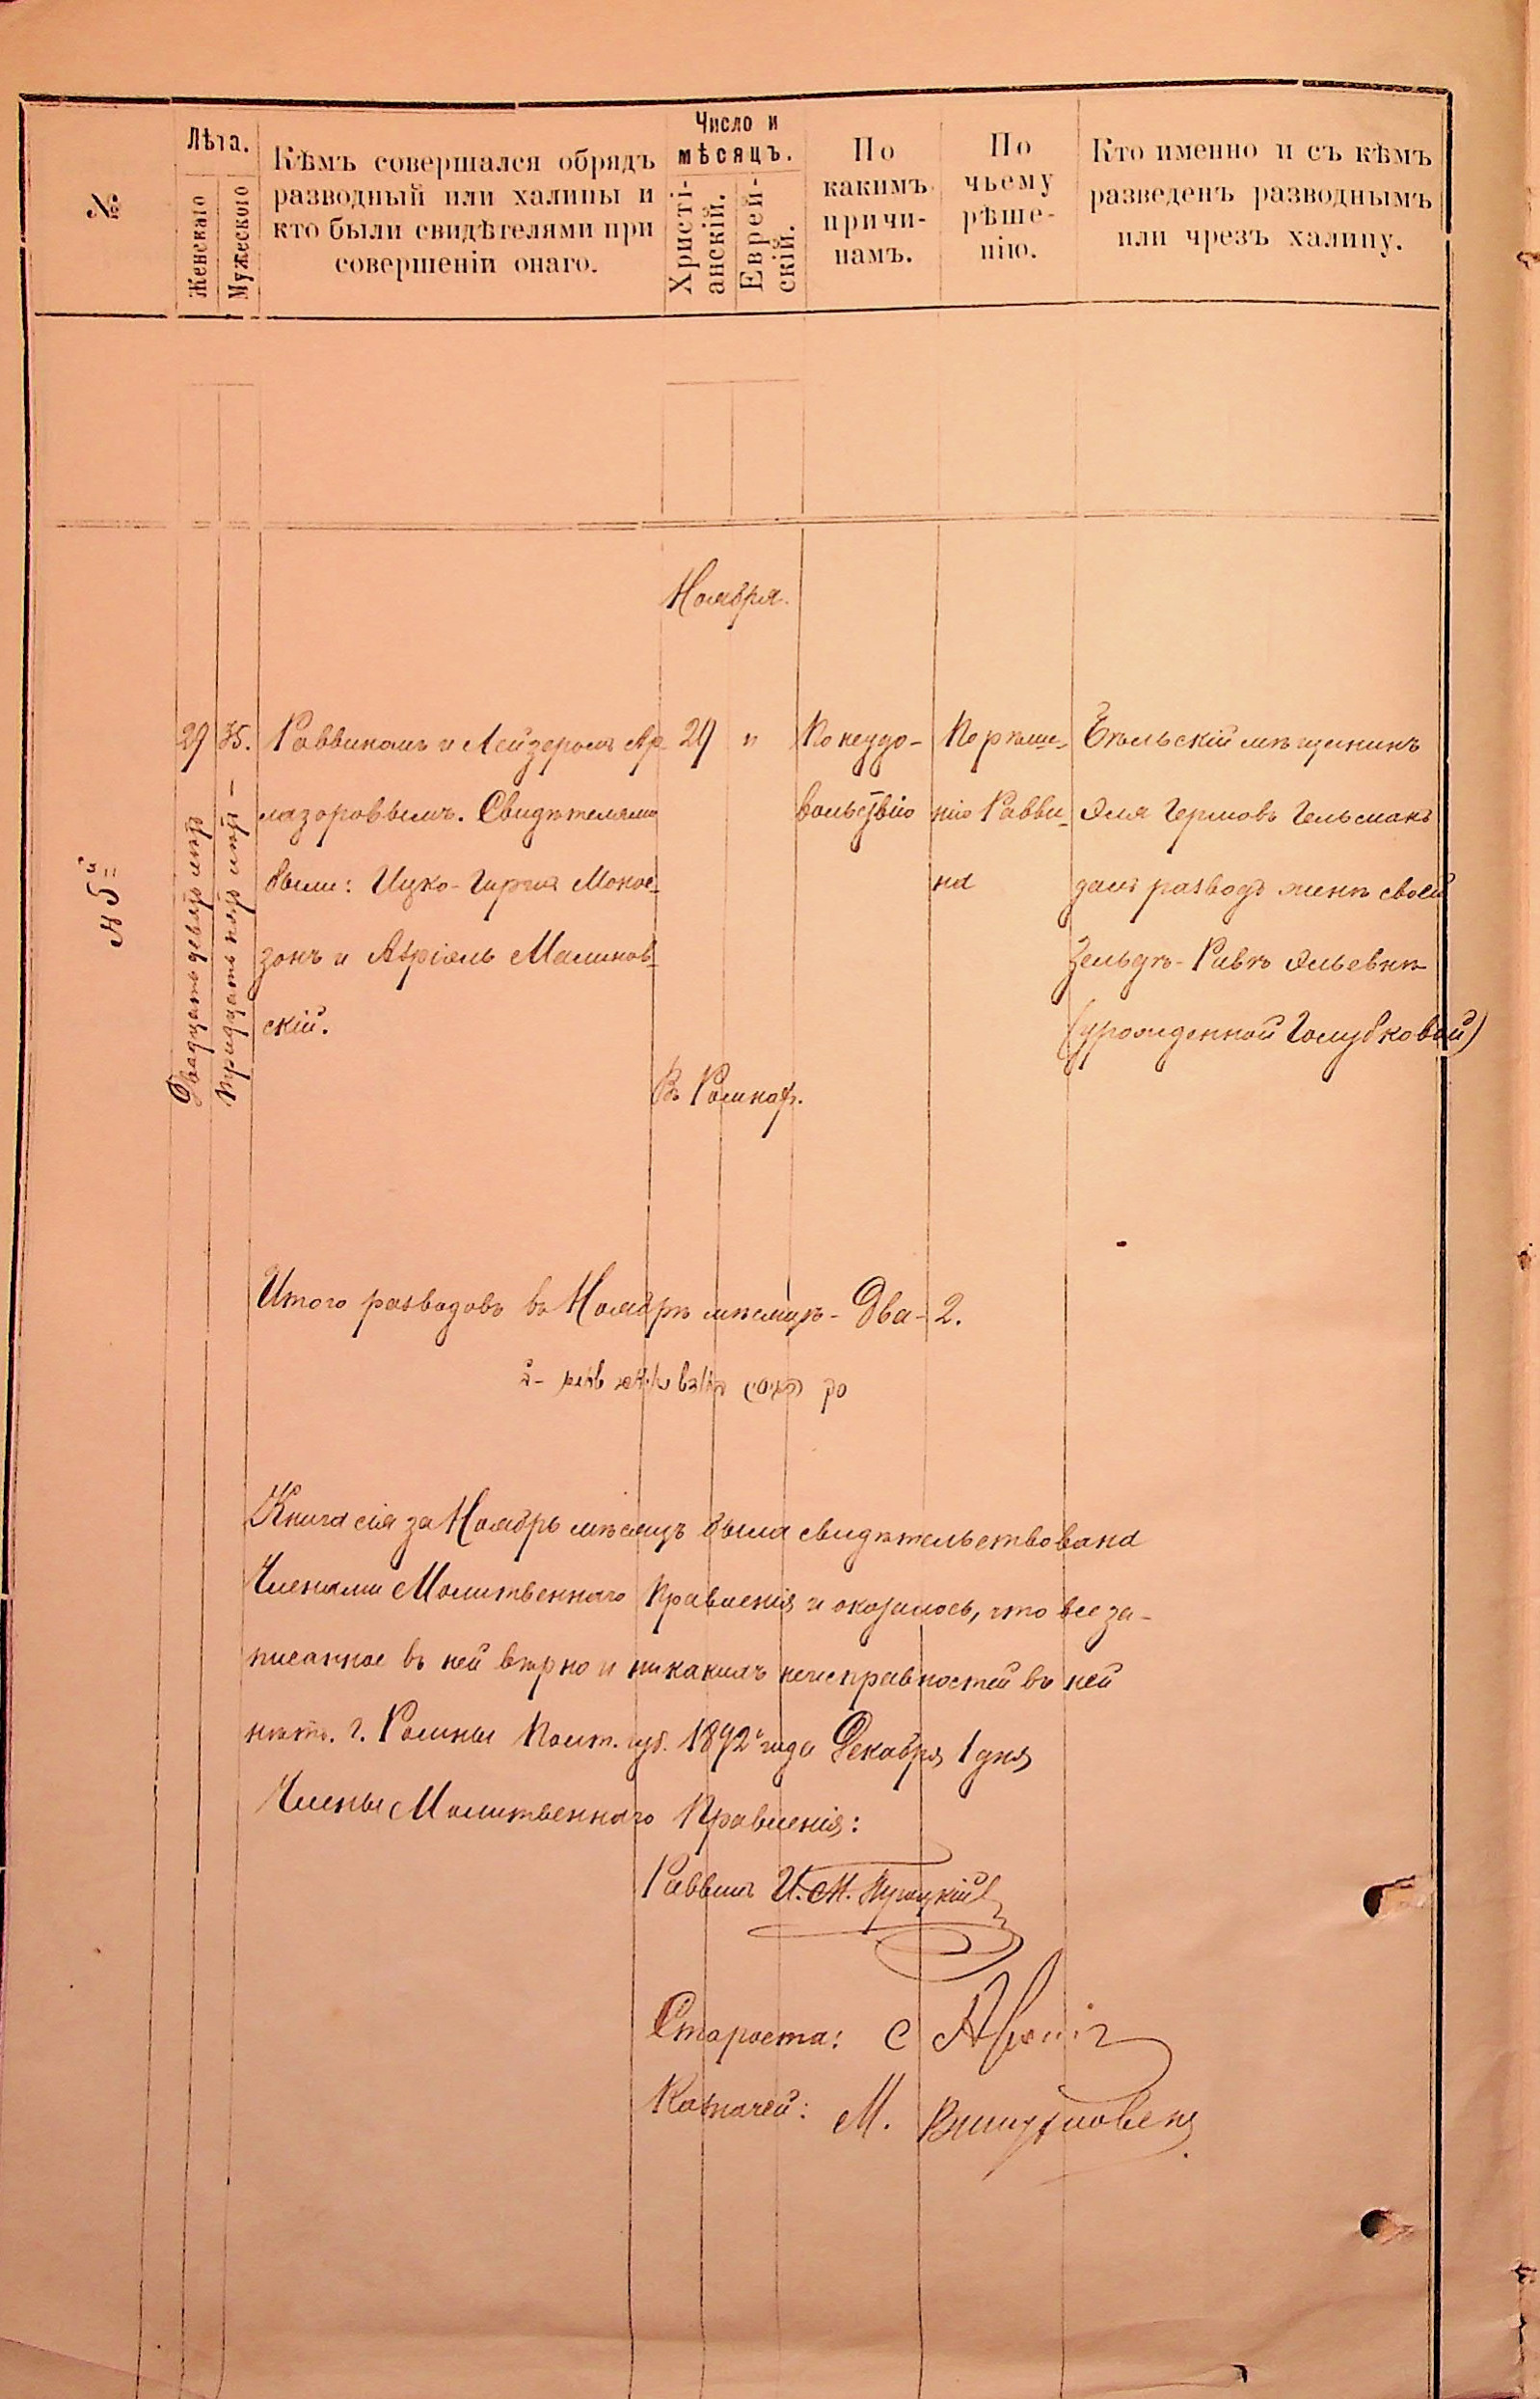 №
Лѣта.
Женскаго
Мужескаго
Кѣмъ совершался обрядъ
разводный или халицы и
кто были свидѣтелями при
совершеніи онаго.
Число и
мѣсяцъ.
Христі-
анскій.
Еврей-
скій.
По
какимъ
причи-
намъ.
По
чьему
рѣше-
нію.
Кто именно и съ кѣмъ
разведенъ разводнымъ
или чрезъ халицу.
Ноября.
№ 5й
29
Двадцать девять лѣтъ
35.
Тридцать пять лѣтъ –
Раввиномъ и Лейзеромъ Ар-
лазоровымъ. Свидѣтелями
были: Ицко-Гирша Моное-
зонъ и Азріель Малинов-
скій.
29 "
Въ Ромнахъ.
По неудо-
вольствію
По рѣше-
нію Равви-
на
Бѣльскій мѣщанинъ
Эля Герцовъ Гельманъ
далъ разводъ женѣ своей
Зельдѣ-Ривѣ Эльевнѣ
(урожденной Голубковой)
Итого разводовъ въ Ноябрѣ мѣсяцѣ – Два – 2.
Книга сія за Ноябрь мѣсяцъ была свидѣтельствована
Членами Молитвеннаго Правленія и оказалось, что все за-
писанное въ ней вѣрно и никакихъ неисправностей въ ней
нѣтъ. г. Ромны Полт. губ. 1892 года Декабря 1 дня
Члены Молитвеннаго Правленія:
Раввинъ И. М.
Староста: С
Казначей: М.